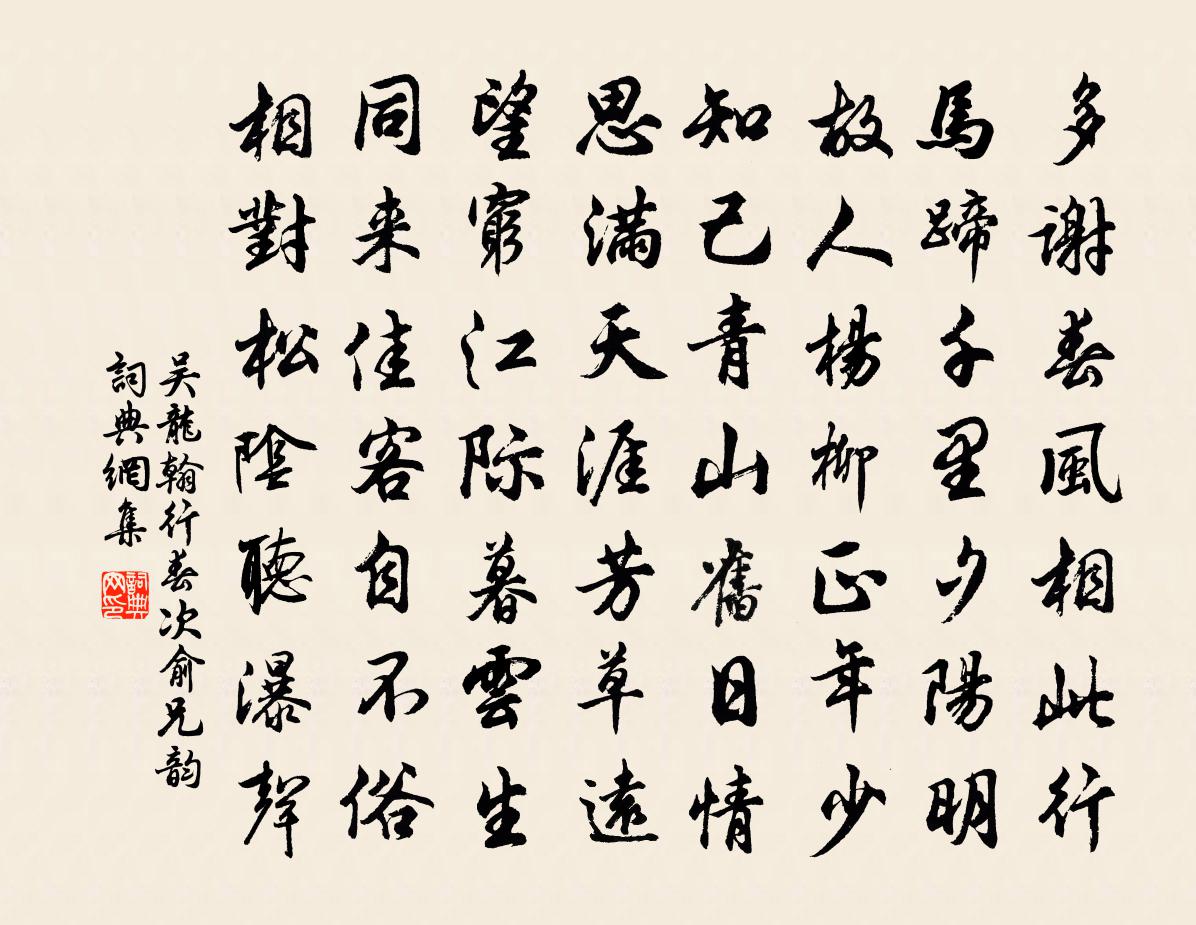 多謝春風相此行
馬蹄千里夕陽明
故人楊柳正年少
知己青山舊日情
思滿天涯芳草遠
望窮江际暮雲生
同来佳客自不俗
相對松陰聽瀑聲
吴龍翰行春次俞兄韵
詞典網集
詞典网印